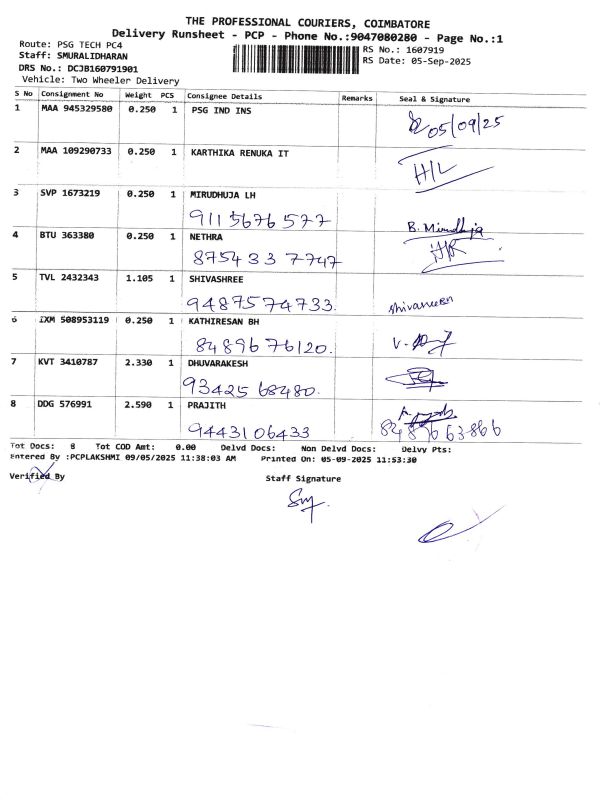 THE PROFESSIONAL COURIERS, COIMBATORE
Delivery Runsheet - PCP - Phone No.:9047080280 - Page No.:1
Route: PSG TECH PC4 RS No.: 1607919
Staff: SMURALIDHARAN RS Date: 05-Sep-2025
DRS No.: DCJB160791901
Vehicle: Two Wheeler Delivery
S No Consignment No Weight PCS Consignee Details Remarks Seal & Signature
1 MAA 945329580 0.250 1 PSG IND INS
05/09/25
2 MAA 109290733 0.250 1 KARTHIKA RENUKA IT
3 SVP 1673219 0.250 1 MIRUDHUJA LH
9115676577 B. Mirudhuja
4 BTU 363380 0.250 1 NETHRA
8754337747
5 TVL 2432343 1.105 1 SHIVASHREE
9487574733.
6 IXM 508953119 0.250 1 KATHIRESAN BH
8489676120.
7 KVT 3410787 2.330 1 DHUVARAKESH
9342568480.
8 DDG 576991 2.590 1 PRAJITH
9443106433 8489663866
Tot Docs: 8 Tot COD Amt: 0.00 Delvd Docs: Non Delvd Docs: Delvy Pts:
Entered By :PCPLAKSHMI 09/05/2025 11:38:03 AM Printed On: 05-09-2025 11:53:30
Verified By Staff Signature